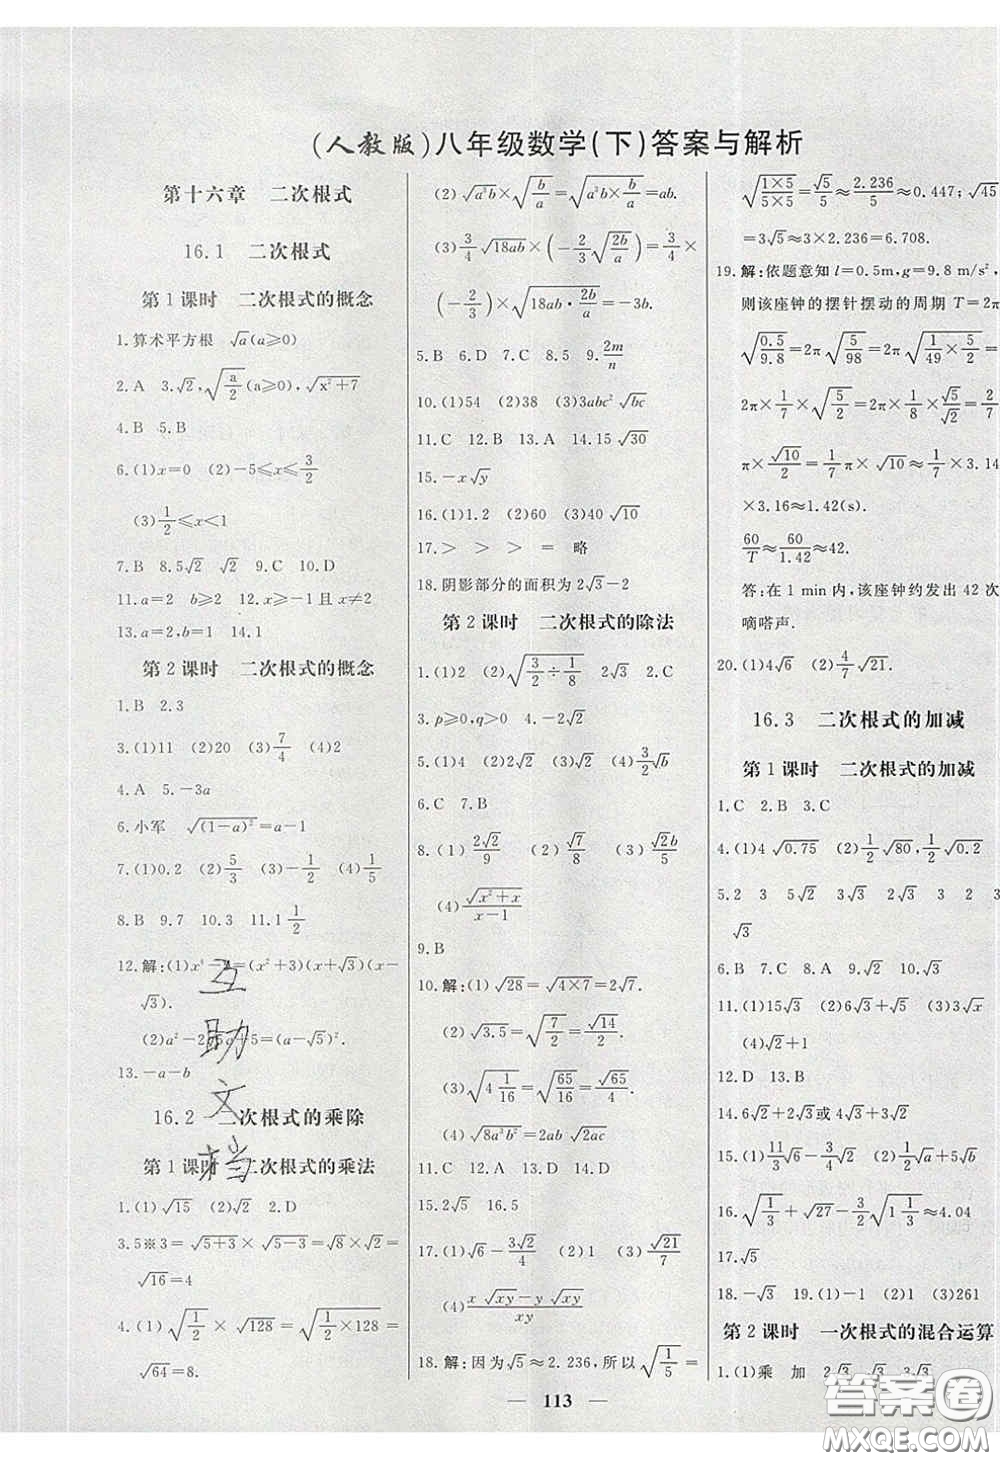 (人教版)八年级数学(下)答案与解析
第十六章 二次根式
16.1 二次根式
第1课时 二次根式的概念
1.算术平方根 √a(a≥0)
2.A 3.√2,√(a/2)(a≥0),√(x²+7)
4.B 5.B
6.(1)x=0 (2)-5≤x≤3/2
(3)1/2≤x<1
7.B 8.5√2 √2 9.C 10.D
11.a=2 b≥2 12.x≥-1且x≠2
13.a=2,b=1 14.1
第2课时 二次根式的概念
1.B 2.3
3.(1)11 (2)20 (3)7/4 (4)2
4.A 5.-3a
6.小军 √((1-a)²)=a-1
7.(1)0.2 (2)5/3 (3)-1/2 (4)1/5
8.B 9.7 10.3 11.1 1/2
12.解:(1)x⁴-9=(x²+3)(x+√3)(x-
√3).
(2)a²-2√5a+5=(a-√5)².
13.-a-b
互助文档
16.2 二次根式的乘除
第1课时 二次根式的乘法
1.(1)√15 (2)√2 2.D
3.5※3=√(5+3)×√(5-3)=√8×√2=
√16=4
4.(1)√(1/2)×√128=√(1/2×128)=
√64=8.
(2)√(a³b)×√(b/a)=√(a³b×b/a)=ab.
(3)3/4√(18ab)×(-2/3√(2b/a))=3/4×
(-2/3)×√(18ab·2b/a)=-3b.
5.B 6.D 7.C 8.5 9.2m/n
10.(1)54 (2)38 (3)3abc²√(bc)
11.C 12.B 13.A 14.15√30
15.-x√y
16.(1)1.2 (2)60 (3)40√10
17.> > > = 略
18.阴影部分的面积为2√3-2
第2课时 二次根式的除法
1.(1)2 (2)√(3/2÷1/8) 2√3 2.A
3.p≥0,q>0 4.-2√2
5.(1)4 (2)2√2 (3)3/2√b
6.C 7.B
8.(1)2√2/9 (2)√7/8 (3)√2b/5a
(4)√(x²+x)/(x-1)
9.B
10.解:(1)√28=√(4×7)=2√7.
(2)√3.5=√(7/2)=√14/2.
(3)√(4 1/16)=√(65/16)=√65/4.
(4)√(8a³b²)=2ab√(2ac)
11.C 12.A 13.C 14.D
15.2√2 16.5
17.(1)√6-3√2/4 (2)1 (3)√21/7
(4)(x√(xy)-y√(xy))/xy
18.解:因为√5≈2.236,所以√(1/5)=
√((1×5)/(5×5))=√5/5≈2.236/5≈0.447;√45
=3√5≈3×2.236=6.708.
19.解:依题意知l=0.5m,g=9.8 m/s²
则该座钟的摆针摆动的周期T=2π
√(0.5/9.8)=2π√(5/98)=2π√(1/49×5/2)=
2π×1/7×√(5/2)=2π×1/8×√5/√2=2/7
π×√10/2=1/7π×√10≈1/7×3.14
×3.16≈1.42(s).
60/T≈60/1.42≈42.
答:在1 min内,该座钟约发出42次
嘀嗒声.
20.(1)4√6 (2)4/7√21.
16.3 二次根式的加减
第1课时 二次根式的加减
1.C 2.B 3.C
4.(1)4√0.75 (2)1/2√80,1/2√0.2
5.2 3 5√2 3√3 2√3 2 3
√3
6.B 7.C 8.A 9.√2 10.√2
11.(1)2√3 (2)6√3+√5 (3)3√x
(4)√2+1
12.D 13.B
14.6√2+√3或4√2+2√3
15.(1)11/3√3-5/2√2 (2)1/2√a+5√b
16.√(1/3)+√27-3/2√(1 1/3)≈4.04
17.√5
18.-√3 19.(1)-1 (2)1 (3)261
第2课时 一次根式的混合运算
1.(1)乘 加 2√3 √3 3√3
113
答案圈
MXQE.COM